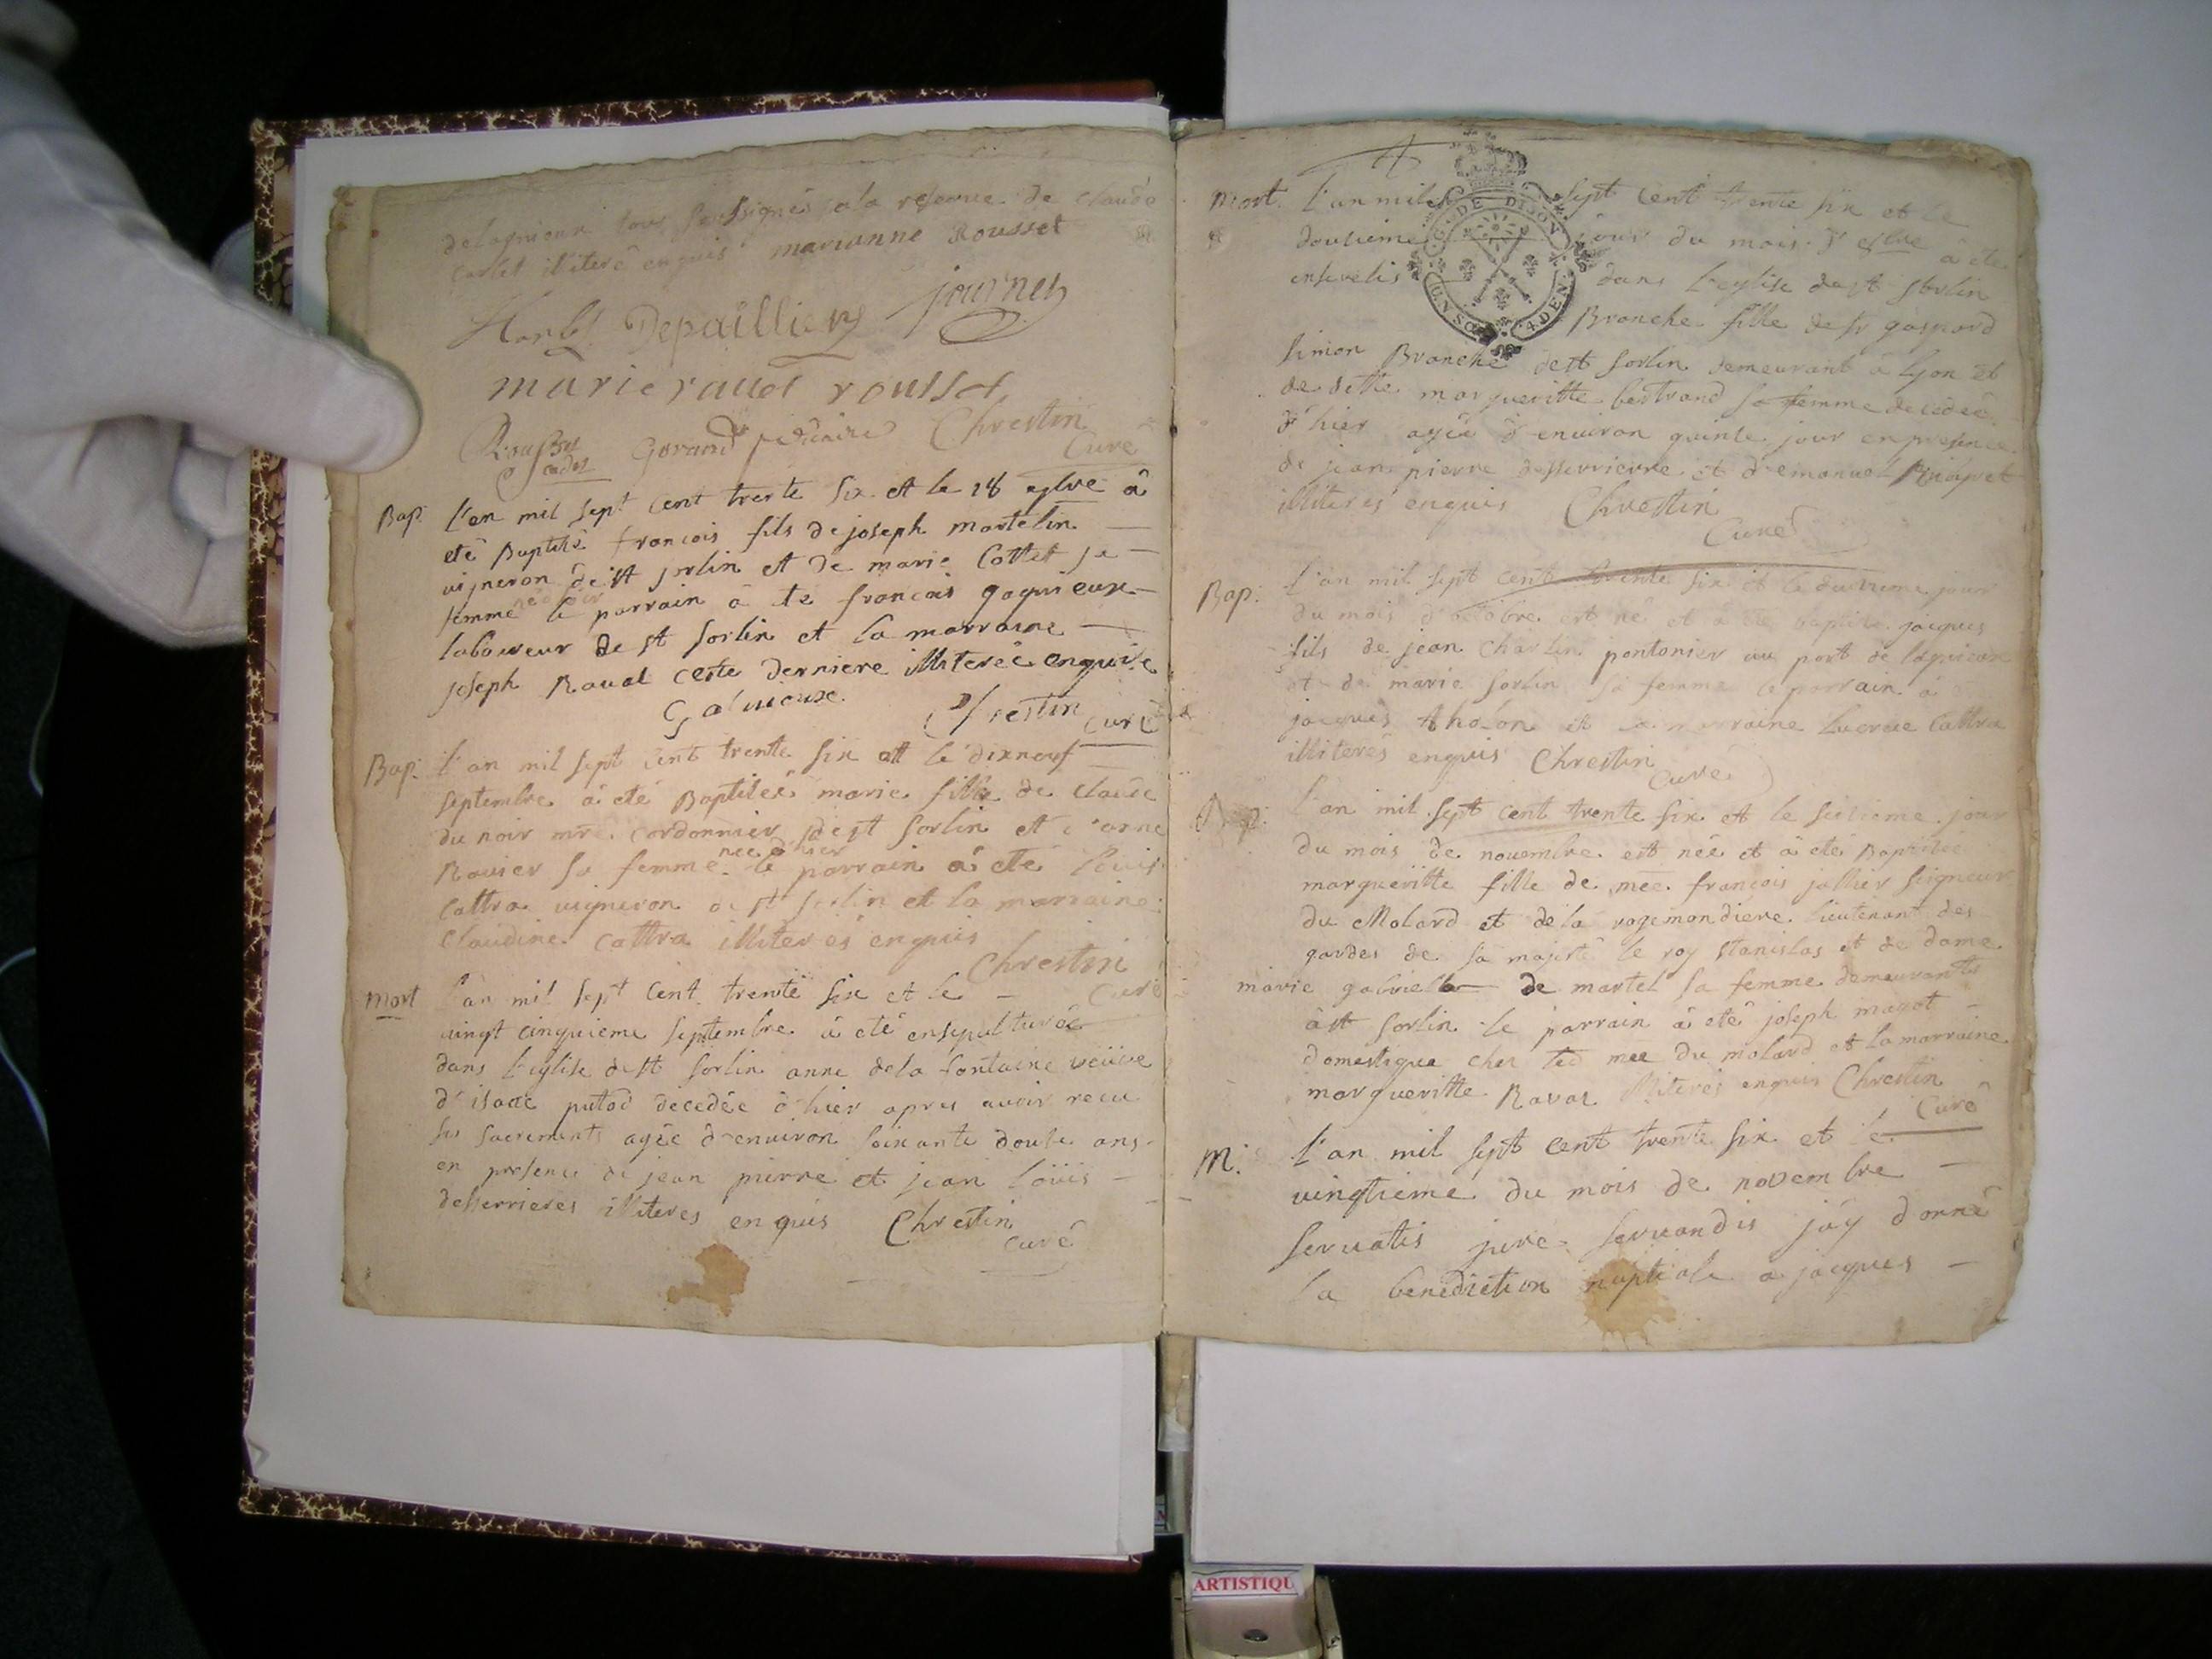 delagnieux tous soussignés a la reserve de claude
cortet illiteré enquis marianne Rousset
Depaillier journet
marie rousset
Chrestin
Curé
Bap: L'an mil sept cent trente six et le 18 7bre â
eté Baptisé françois fils de joseph martelin
vigneron de st sorlin et de marie Cottet sa
femme le parrain â eté francois
laboureur de st sorlin et la marraine
joseph Raval cette derniere illiterée enquise
Chrestin curé
Bap: L'an mil sept cent trente six et le dixneuf
septembre â eté Baptisée marie fille de claude
du noir mre cordonnier de st sorlin et d'anne
née d'hier
Ravier sa femme le parrain â eté Louis
Cattra vigneron de st sorlin et la marraine
Claudine Cattra illiterés enquis
Chrestin
Curé
mort L'an mil sept cent trente six et le
vingt cinquieme septembre â eté ensepulturée
dans l'eglise de st sorlin anne dela fontaine veuve
d'isaac putod decedée d'hier apres avoir recu
ses sacrements agée d'environ soixante douze ans
en presence de jean pierre et jean Loüis
desserrieres illiteres enquis Chrestin
curé
mort. L'an mil sept cent trente six et le
douzieme jour du mois d' 8bre â eté
enseveli dans l'eglise de st sorlin
Branche fille de sr gaspard
simon Branche de st sorlin demeurant â Lyon et
de dlle margueritte bertrand sa femme decedée
d'hier agée d'environ quinze jour en presence
de jean pierre desserrierre et d'emanuel
illiterés enquis Chrestin
Curé
Bap: L'an mil sept cent trente six et le jour
du mois d'octobre est né et â eté baptisé jacques
fils de jean Charlin pontonier au port de lagnieux
et de marie sorlin sa femme le parrain â
jacques et la marraine Cattra
illiterés enquis Chrestin
Curé
L'an mil sept cent trente six et le seizieme jour
du mois de novembre est née et â eté Baptisée
margueritte fille de mee. françois jallier seigneur
du Molard et de la rogemondiere lieutenant des
gardes de sa majesté le roy stanislas et de dame
marie gabrielle de martel sa femme demeurants
â st sorlin le parrain â eté joseph magot
domestique chez led mee du molard et la marraine
margueritte Ravat illiterés enquis Chrestin
Curé
M: L'an mil sept cent trente six et le
vingtieme du mois de novembre
servatis jure servandis j'ay donné
la benediction nuptiale a jacques
ARTISTIQU